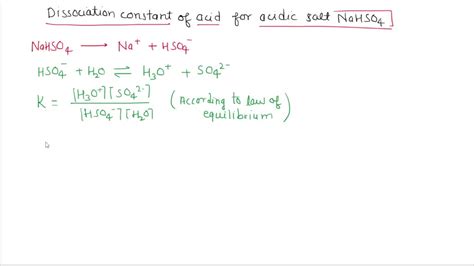 Dissociation constant of acid for acidic salt NaHSO₄
NaHSO₄ ⟶ Na⁺ + HSO₄⁻
HSO₄⁻ + H₂O ⇌ H₃O⁺ + SO₄²⁻
K = [H₃O⁺][SO₄²⁻] / [HSO₄⁻][H₂O] (According to law of
equilibrium)